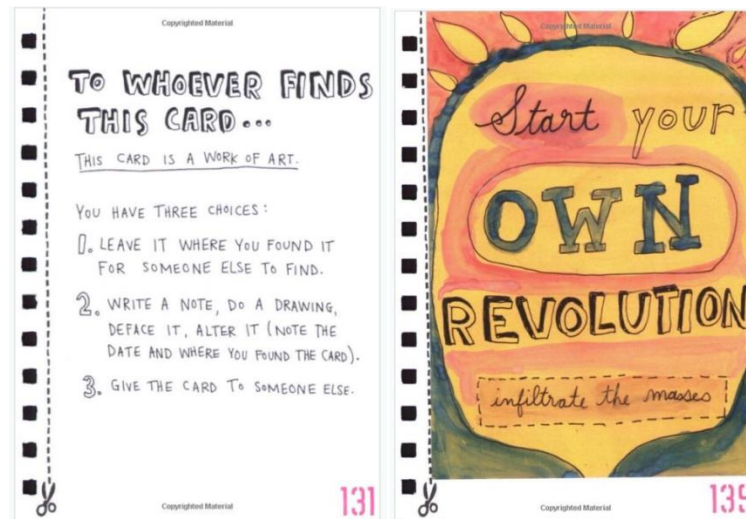 Copyrighted Material
TO WHOEVER FINDS
THIS CARD...
THIS CARD IS A WORK OF ART.
YOU HAVE THREE CHOICES:
1. LEAVE IT WHERE YOU FOUND IT
FOR SOMEONE ELSE TO FIND.
2. WRITE A NOTE, DO A DRAWING,
DEFACE IT, ALTER IT (NOTE THE
DATE AND WHERE YOU FOUND THE CARD).
3. GIVE THE CARD TO SOMEONE ELSE.
Copyrighted Material
131
Copyrighted Material
Start your
OWN
REVOLUTION
infiltrate the masses
Copyrighted Material
139